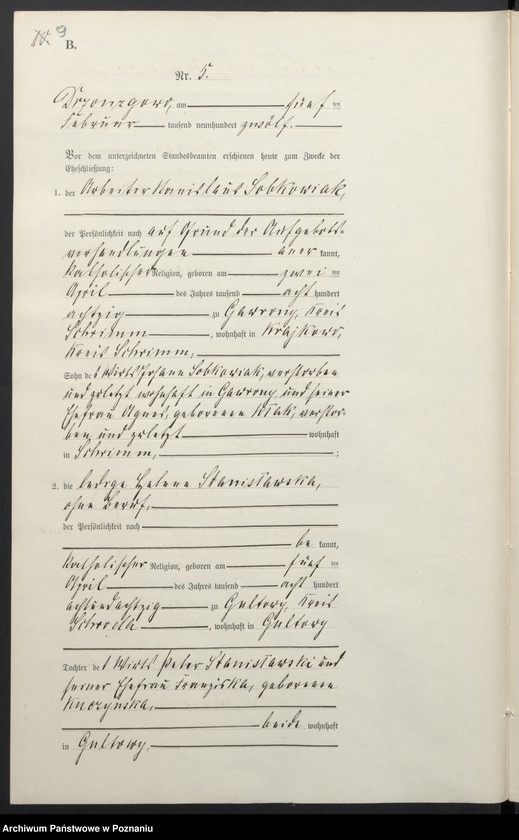 9
B.
Nr. 5.
am fünf ten
Februar tausend neunhundert zwölf.
Vor dem unterzeichneten Standesbeamten erschienen heute zum Zwecke der
Eheschließung:
1. der Arbeiter Stanislaus Sobkowiak,
der Persönlichkeit nach auf Grund der Aufgebots-
verhandlungen aner kannt,
katholischer Religion, geboren am zwei ten
April des Jahres tausend acht hundert
achtzig zu Gawrony, Kreis
Schrimm, wohnhaft in Krajkowo,
Kreis Schrimm,
Sohn des Wirts Johann Sobkowiak, verstorben
und zuletzt wohnhaft in Gawrony, und seiner
Ehefrau Agnes, geborenen verstor-
ben und zuletzt wohnhaft
in Schrimm, ;
2. die ledige Helene Stanisławska,
ohne Beruf,
der Persönlichkeit nach
be kannt,
katholischer Religion, geboren am fünf ten
April des Jahres tausend acht hundert
achtundachtzig zu Gultowy, Kreis
Schroda, wohnhaft in Gultowy
Tochter des Wirts Peter Stanisławski und
seiner Ehefrau Franziska, geborenen
beide wohnhaft
in Gultowy,
Archiwum Państwowe w Poznaniu